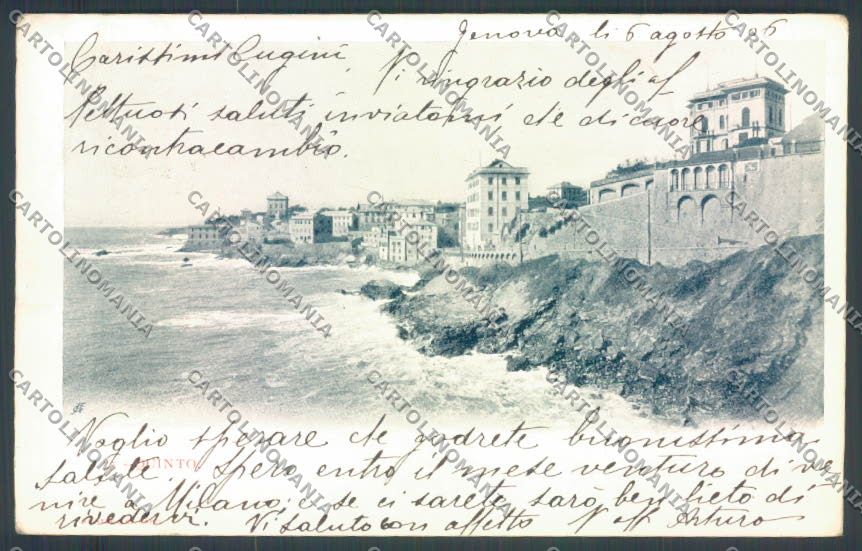 Genova li 6 agosto 26
Carissimi Cugini
Vi ringrazio degli af
fettuosi saluti inviatomi che di cuore
ricontracambio.
Voglio sperare che godrete buonissima
QUINTO
salute. Spero entro il mese venturo di ve
nire a Milano; e se ci sarete sarò ben lieto di
rivedervi. Vi saluto con affetto V. aff Arturo
CARTOLINOMANIA